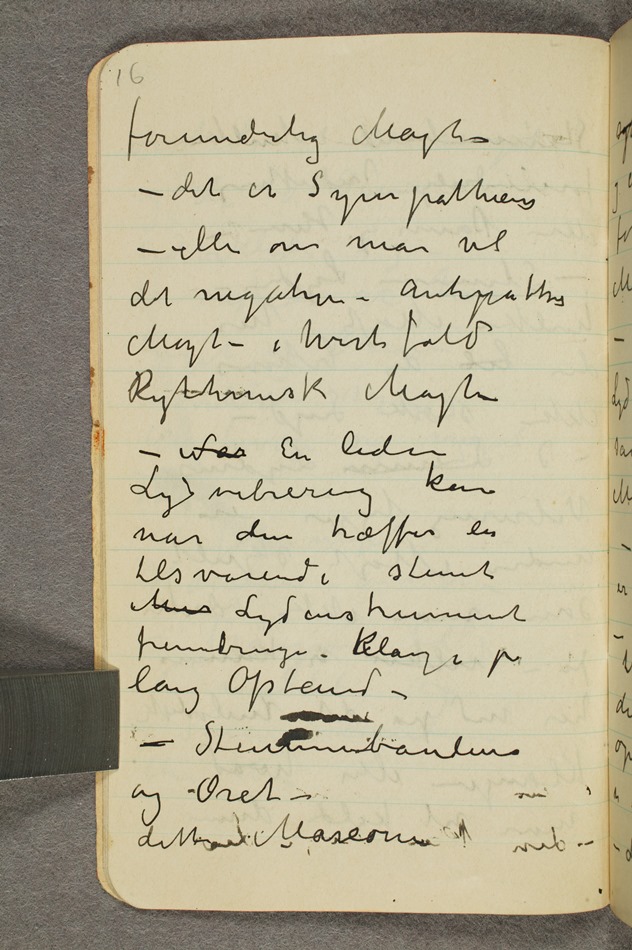 16
forunderlig Magt –
– det er Sympathiens
– eller om man vil
det negative – Antipathis
Magt – i hvert fald
Rythmisk Magt
– En liden
Lydvibrering kan
når den træffer en
tilsvarende stemt
Lydinstrument
frembringe – Klange på
lang Afstand –
– Stemmebåndene
og Øret –
dette Marconi